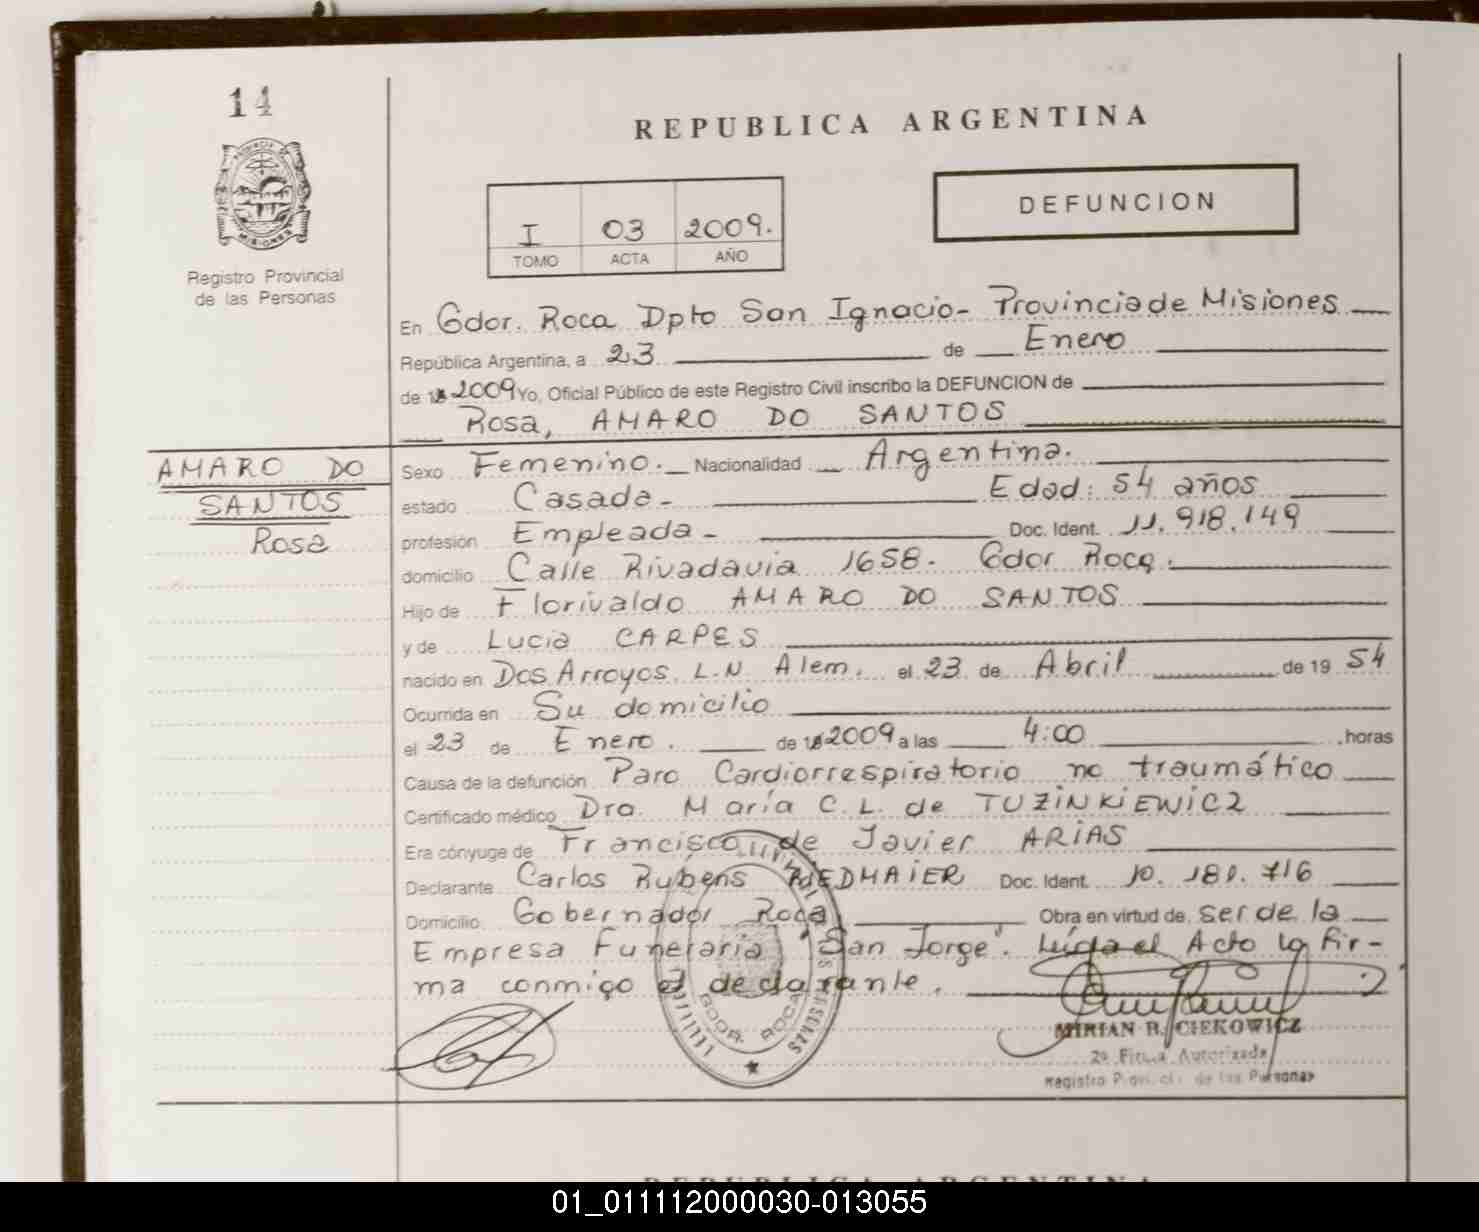 14
PROVINCIA DE
MISIONES
Registro Provincial
de las Personas
REPUBLICA ARGENTINA
I 03 2009.
TOMO ACTA AÑO
DEFUNCION
En Gdor. Roca Dpto San Ignacio- Provincia de Misiones
República Argentina, a 23 de Enero
de 2009 Yo, Oficial Público de este Registro Civil inscribo la DEFUNCION de
Rosa, AMARO DO SANTOS
AMARO DO
SANTOS
Rosa
Sexo Femenino. Nacionalidad Argentina.
estado Casada- Edad: 54 años
profesión Empleada- Doc. Ident. 11.918.149
domicilio Calle Rivadavia 1658. Gdor Roca.
Hijo de Florivaldo AMARO DO SANTOS
y de Lucia CARPES
nacido en Dos Arroyos. L.N. Alem. el 23 de Abril de 19 54
Ocurrida en Su domicilio
el 23 de Enero. de 2009 a las 4:00 horas
Causa de la defunción Paro Cardiorrespiratorio no traumático
Certificado médico Dra. María C. L. de TUZINKIEWICZ
Era cónyuge de Francisco de Javier ARIAS
Declarante Carlos Rubens RIEDMAIER Doc. Ident. 10.180.716
Domicilio Gobernador Roca Obra en virtud de ser de la
Empresa Funeraria "San Jorge". Leída el Acto la fir-
ma conmigo el declarante.
GDOR. ROCA
MIRIAN R. CIEKOWICZ
2º Firma Autorizada
Registro Provincial de las Personas
REPUBLICA ARGENTINA
01_011112000030-013055